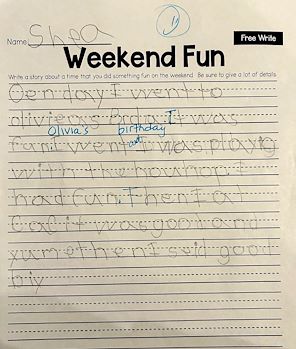 Name Shea
Free Write
Weekend Fun
Write a story about a time that you did something fun on the weekend. Be sure to give a lot of details.
Oen day I went to
Olivia's birthday
fun. I went I was playig
with the
had fun. Then I at
it was good and
then I seid good
biy